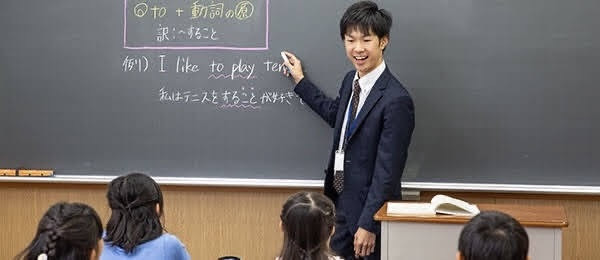 ◎ to + 動詞の原
訳:〜すること
例) I like to play ten
私はテニスをすることが好きで